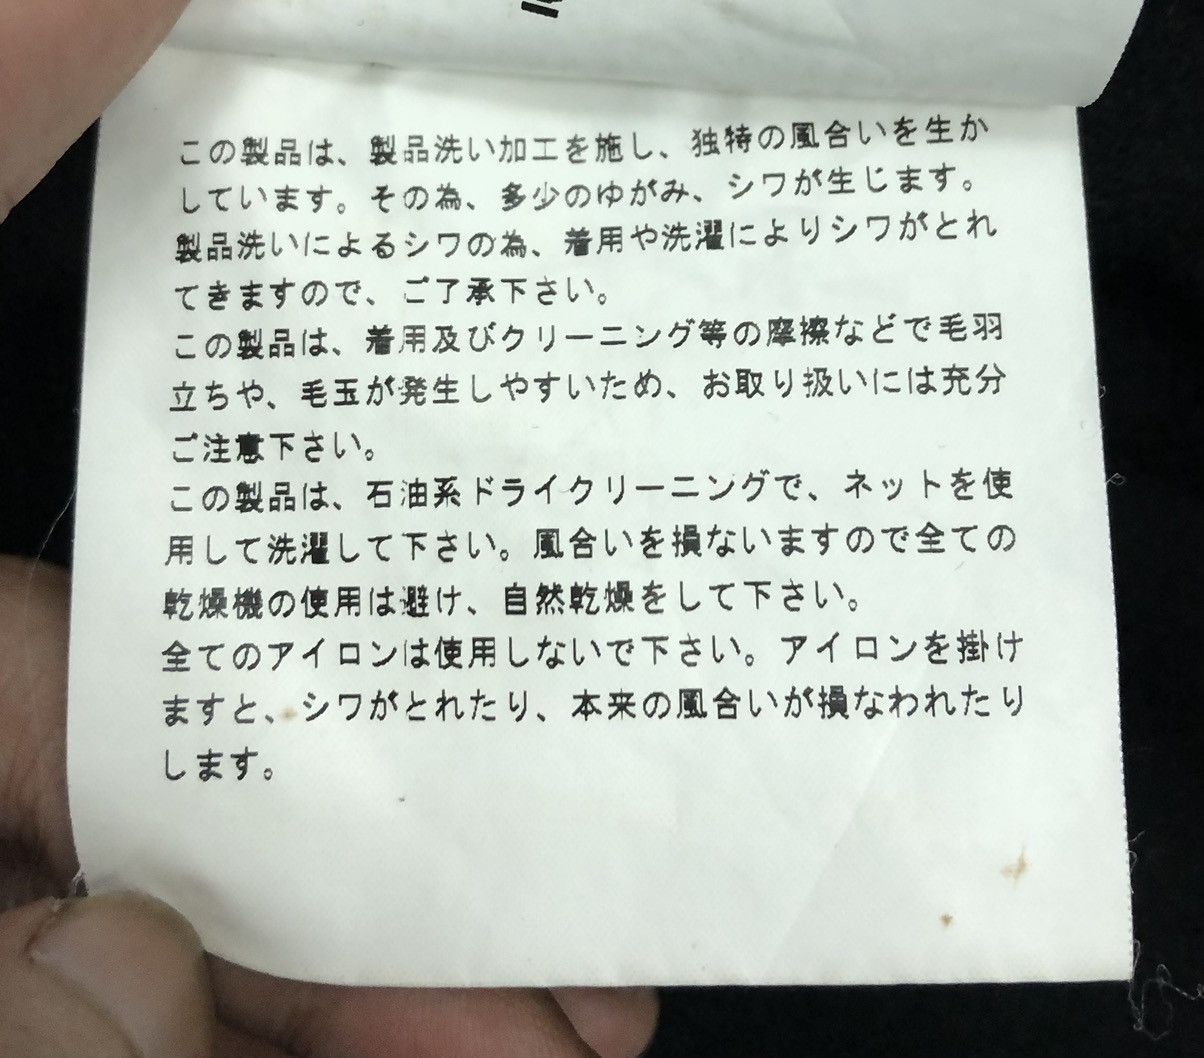 この製品は、製品洗い加工を施し、独特の風合いを生か
しています。その為、多少のゆがみ、シワが生じます。
製品洗いによるシワの為、着用や洗濯によりシワがとれ
てきますので、ご了承下さい。
この製品は、着用及びクリーニング等の摩擦などで毛羽
立ちや、毛玉が発生しやすいため、お取り扱いには充分
ご注意下さい。
この製品は、石油系ドライクリーニングで、ネットを使
用して洗濯して下さい。風合いを損ないますので全ての
乾燥機の使用は避け、自然乾燥をして下さい。
全てのアイロンは使用しないで下さい。アイロンを掛け
ますと、シワがとれたり、本来の風合いが損なわれたり
します。